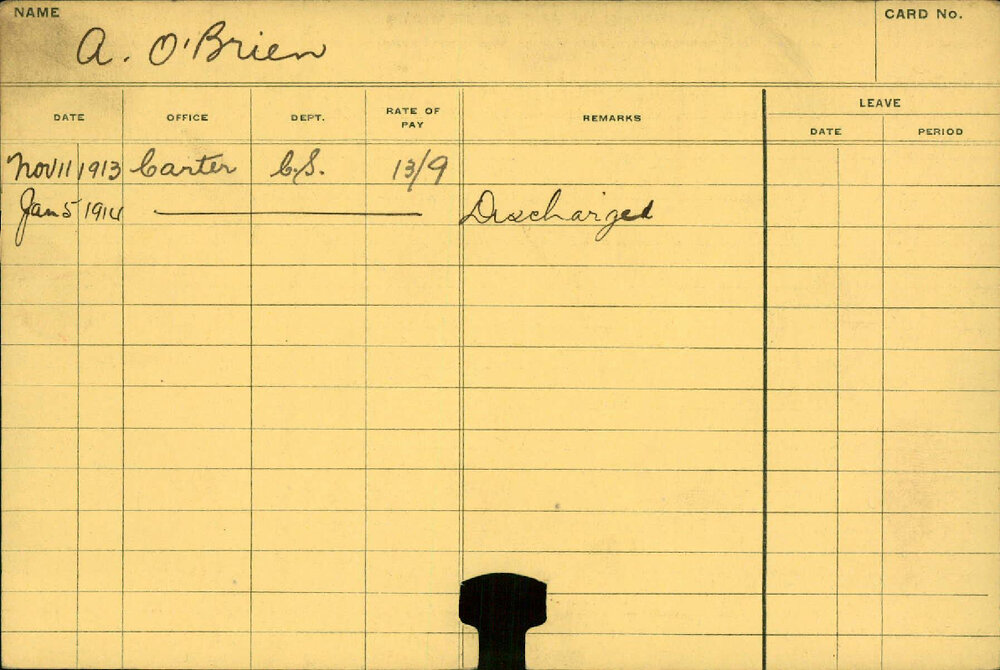 NAME
CARD No.
A. O'Brien
LEAVE
DATE OFFICE DEPT. RATE OF PAY REMARKS DATE PERIOD
Nov 11 1913 Carter C.S. 13/9
Jan 5 1914 Discharged